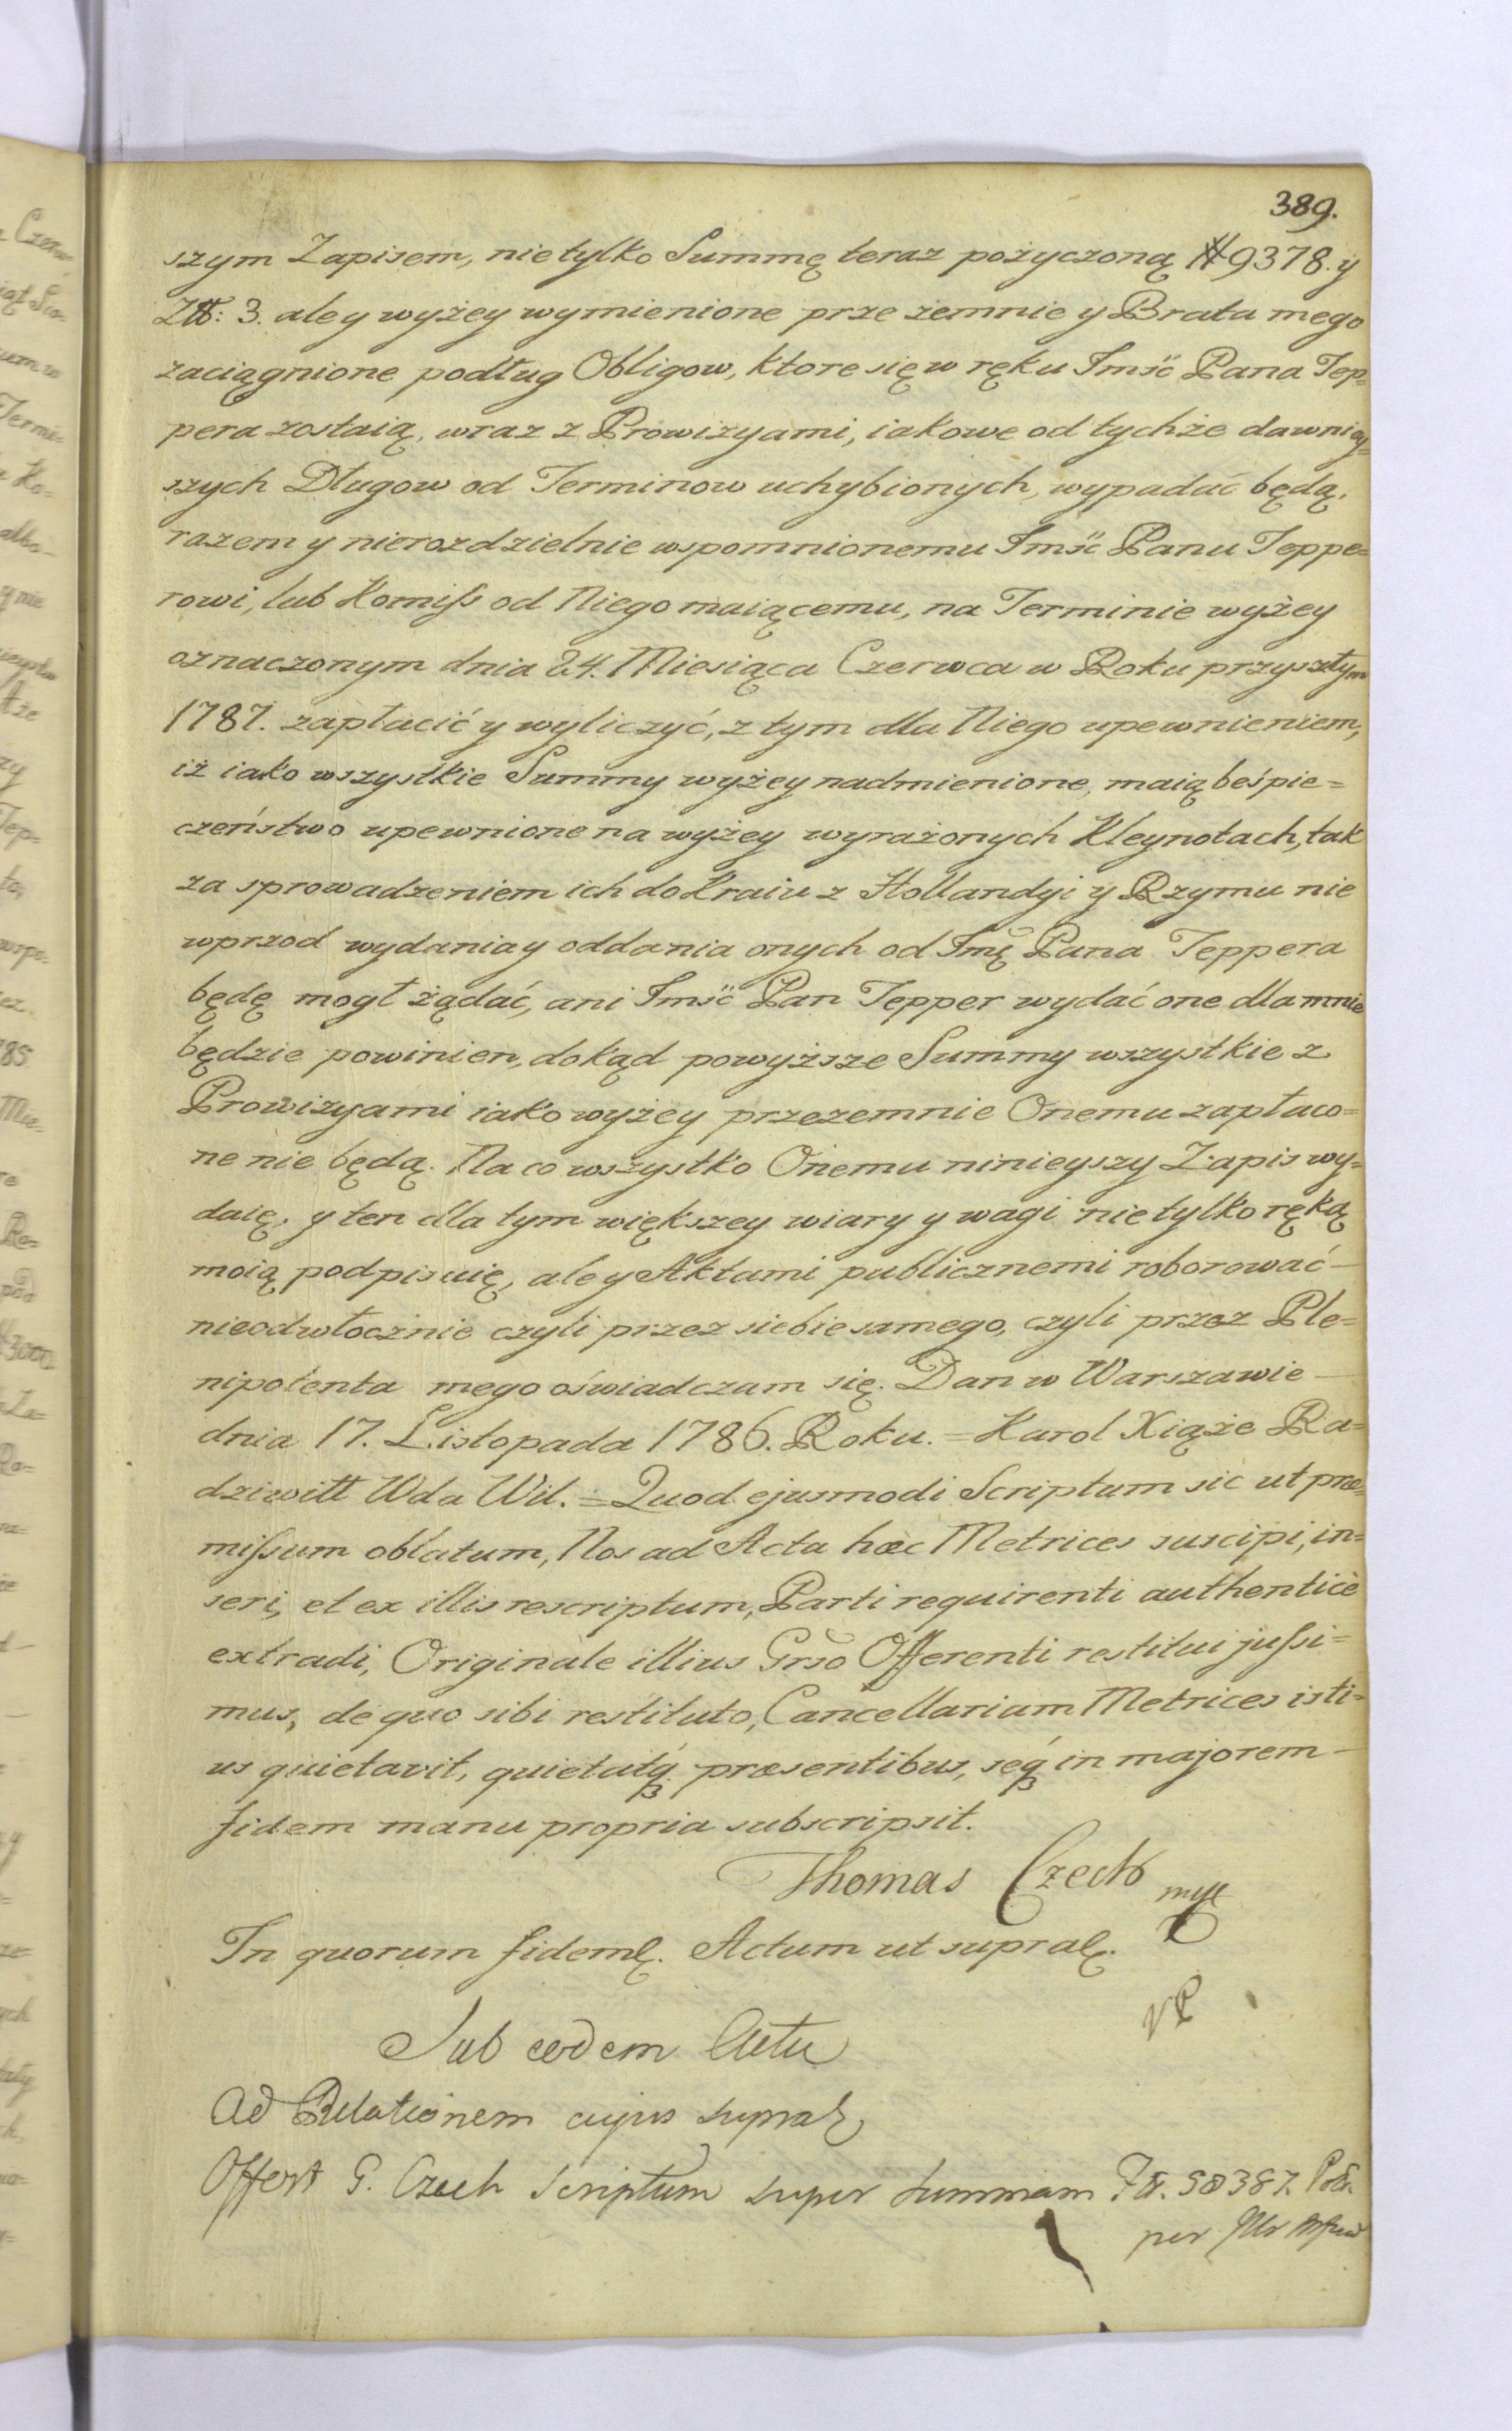 389.
szym Zapisem, nie tylko Summę teraz pożyczoną # 9378. y
Zł: 3. ale y wyżey wymienione prze zemnie y Brata mego
zaciągnione podług Obligow, ktore się w ręku Imść Pana Tep=
pera zostaią, wraz z Prowizyami, iakowe od tychże dawniey=
szych Długow od Terminow uchybionych, wypadać będą,
razem y nierozdzielnie wspomnionemu Imść Panu Teppe=
rowi, lub Komiss od Niego maiącemu, na Terminie wyżey
oznaczonym dnia 24. Miesiąca Czerwca w Roku przyszłym
1787. zapłacić y wyliczyć, z tym dla Niego upewnieniem,
iż iako wszystkie Summy wyżey nadmienione, maią beśpie=
czeństwo upewnione na wyżey wyrażonych Kleynotach, tak
za sprowadzeniem ich do Kraiu z Hollandyi y Rzymu nie
wprzod wydania y oddania onych od Imę Pana Teppera
będę mogł żądać, ani Imść Pan Tepper wydać one dla mnie
będzie powinien, dokąd powyższe Summy wszystkie z
Prowizyami iako wyżey przezemnie Onemu zapłaco=
ne nie będą. Na co wszystko Onemu ninieyszy Zapis wy=
daię, y ten dla tym większey wiary y wagi nie tylko ręką
moią podpisuię, ale y Aktami publicznemi roborować —
nieodwłocznie czyli przez siebie samego, czyli przez Ple=
nipotenta mego oświadczam się. Dan w Warszawie —
dnia 17. Listopada 1786. Roku. = Karol Xiąże Ra=
dziwiłł Wda Wil. = Quod ejusmodi Scriptum sic ut præ=
missum oblatum, Nos ad Acta hæc Metrices suscipi, in=
seri, et ex illis rescriptum, Parti requirenti authenticè
extradi, Originale illius Grso Offerenti restitui jussi=
mus, de quo sibi restituto, Cancellariam Metrices isti=
us quietavit, quietatq́ præsentibus, seq́ in majorem —
fidem manu propria subscripsit.
Thomas Czech mpp
In quorum fidem. Actum ut supra.
Sub eodem Actu
Ad Relationem cujus supra
Offert G. Czech Scriptum super Summam 58387.
per